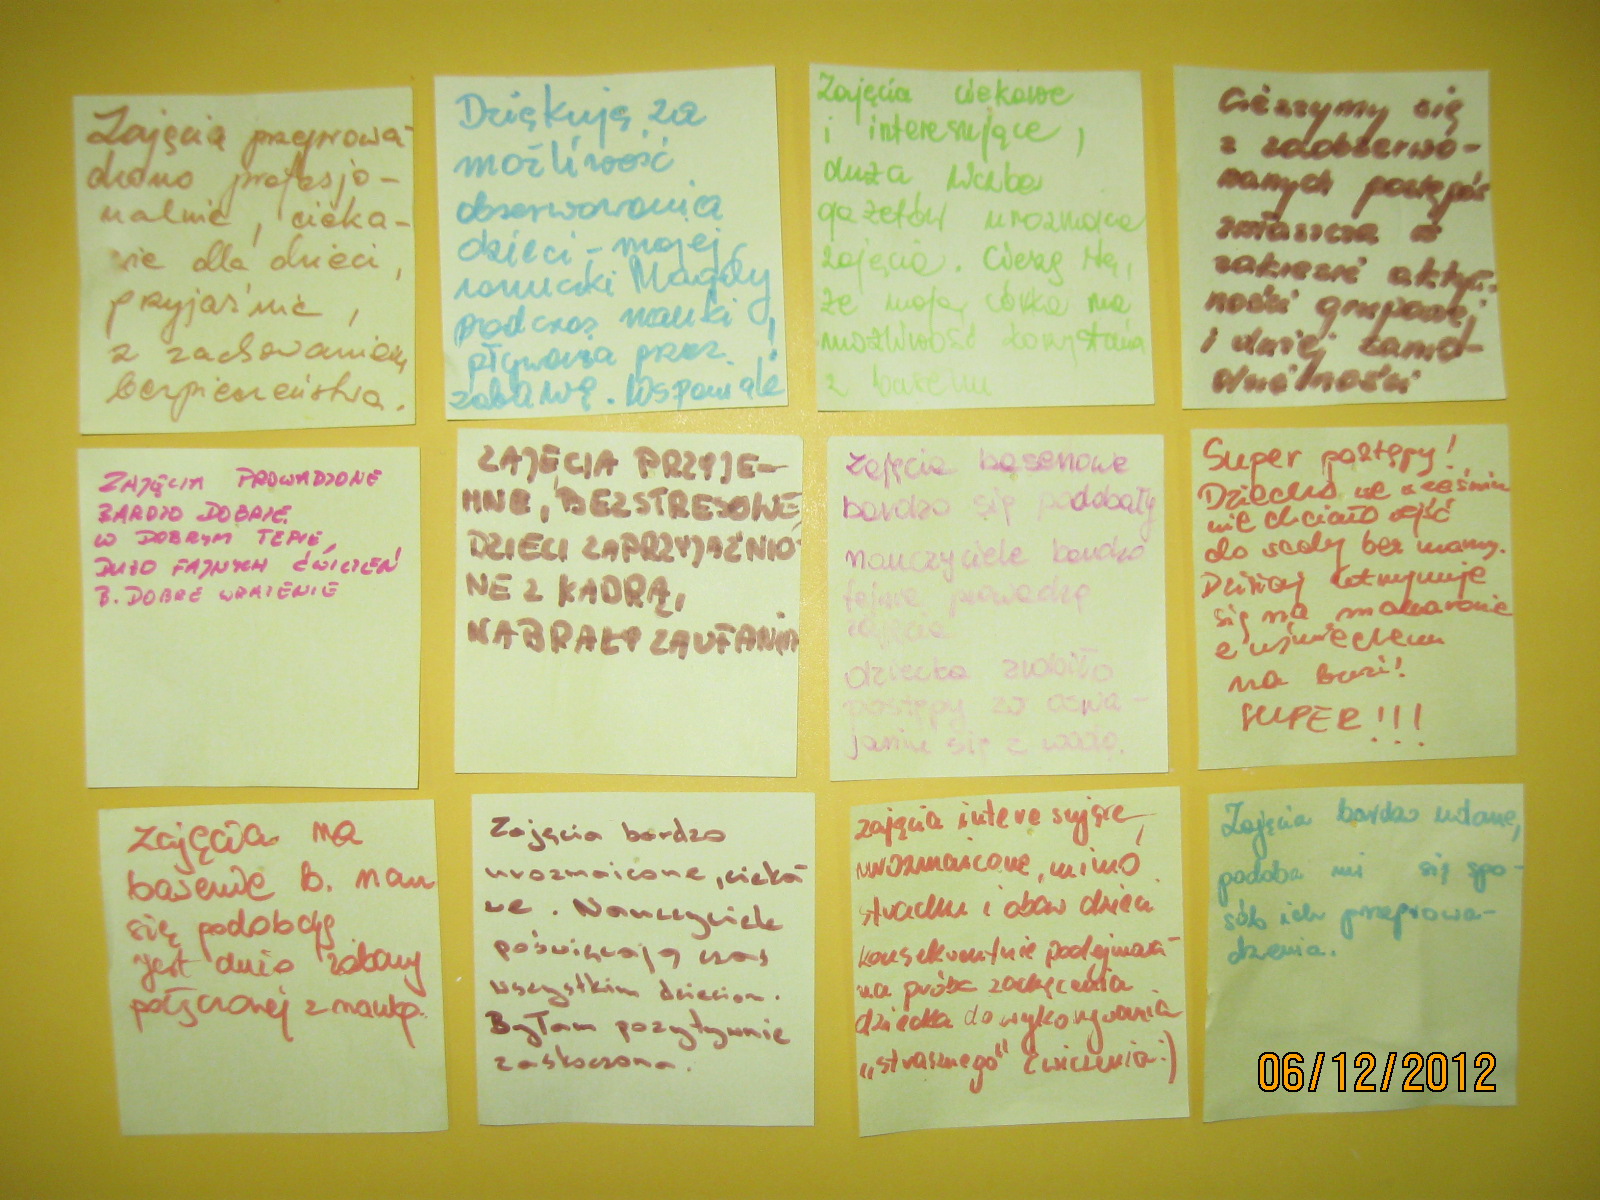 Zajęcia przeprowa-
dzono profesjo-
nalnie, cieka-
wie dla dzieci,
przyjaźnie,
z zachowaniem
bezpieczeństwa.
Dziękuję za
możliwość
obserwowania
dzieci - mojej
wnuczki Magdy
podczas nauki
pływania przez
zabawę. Wspaniałe
Zajęcia ciekawe
i interesujące,
duża liczba
gażetów urozmaica
zajęcia. Cieszę się,
że moja córka ma
możliwość korzystania
z basenu
Cieszymy się
z zaobserwo-
wanych postępów
zwłaszcza w
zakresie aktyw-
ności grupowej
i dniej samo-
dzielności
ZAJĘCIA PROWADZONE
BARDZO DOBRZE,
W DOBRYM TEPIE,
DUŻO FAJNYCH ĆWICZEŃ
B. DOBRE WRAŻENIE
ZAJĘCIA PRZYJE-
MNE, BEZSTRESOWE,
DZIECI ZAPRZYJAŹNIO-
NE Z KADRĄ,
NABRAŁY ZAUFANIA
Zajęcia basenowe
bardzo się podobały
nauczyciele bardzo
fajnie prowadzą
zajęcia
dziecko zrobiło
postępy w oswa-
janiu się z wodą.
Super postępy!
Dziecko we wrześniu
nie chciało wejść
do wody bez mamy.
Dzisiaj utrzymuje
się na makaronie
z uśmiechem
na buzi!
SUPER!!!
Zajęcia na
basenie b. nam
się podobają
jest dużo zabawy
połączonej z nauką.
Zajęcia bardzo
urozmaicone, cieka-
we. Nauczyciele
poświęcają czas
wszystkim dzieciom.
Byłam pozytywnie
zaskoczona.
zajęcia interesujące,
urozmaicone, mimo
strachu i obaw dzieci
konsekwentnie podejmowa-
na próba zachęcenia
dziecka do wykonywania
"strasznego" ćwiczenia:)
Zajęcia bardzo udane,
podoba mi się spo-
sób ich przeprowa-
dzenia.
06/12/2012